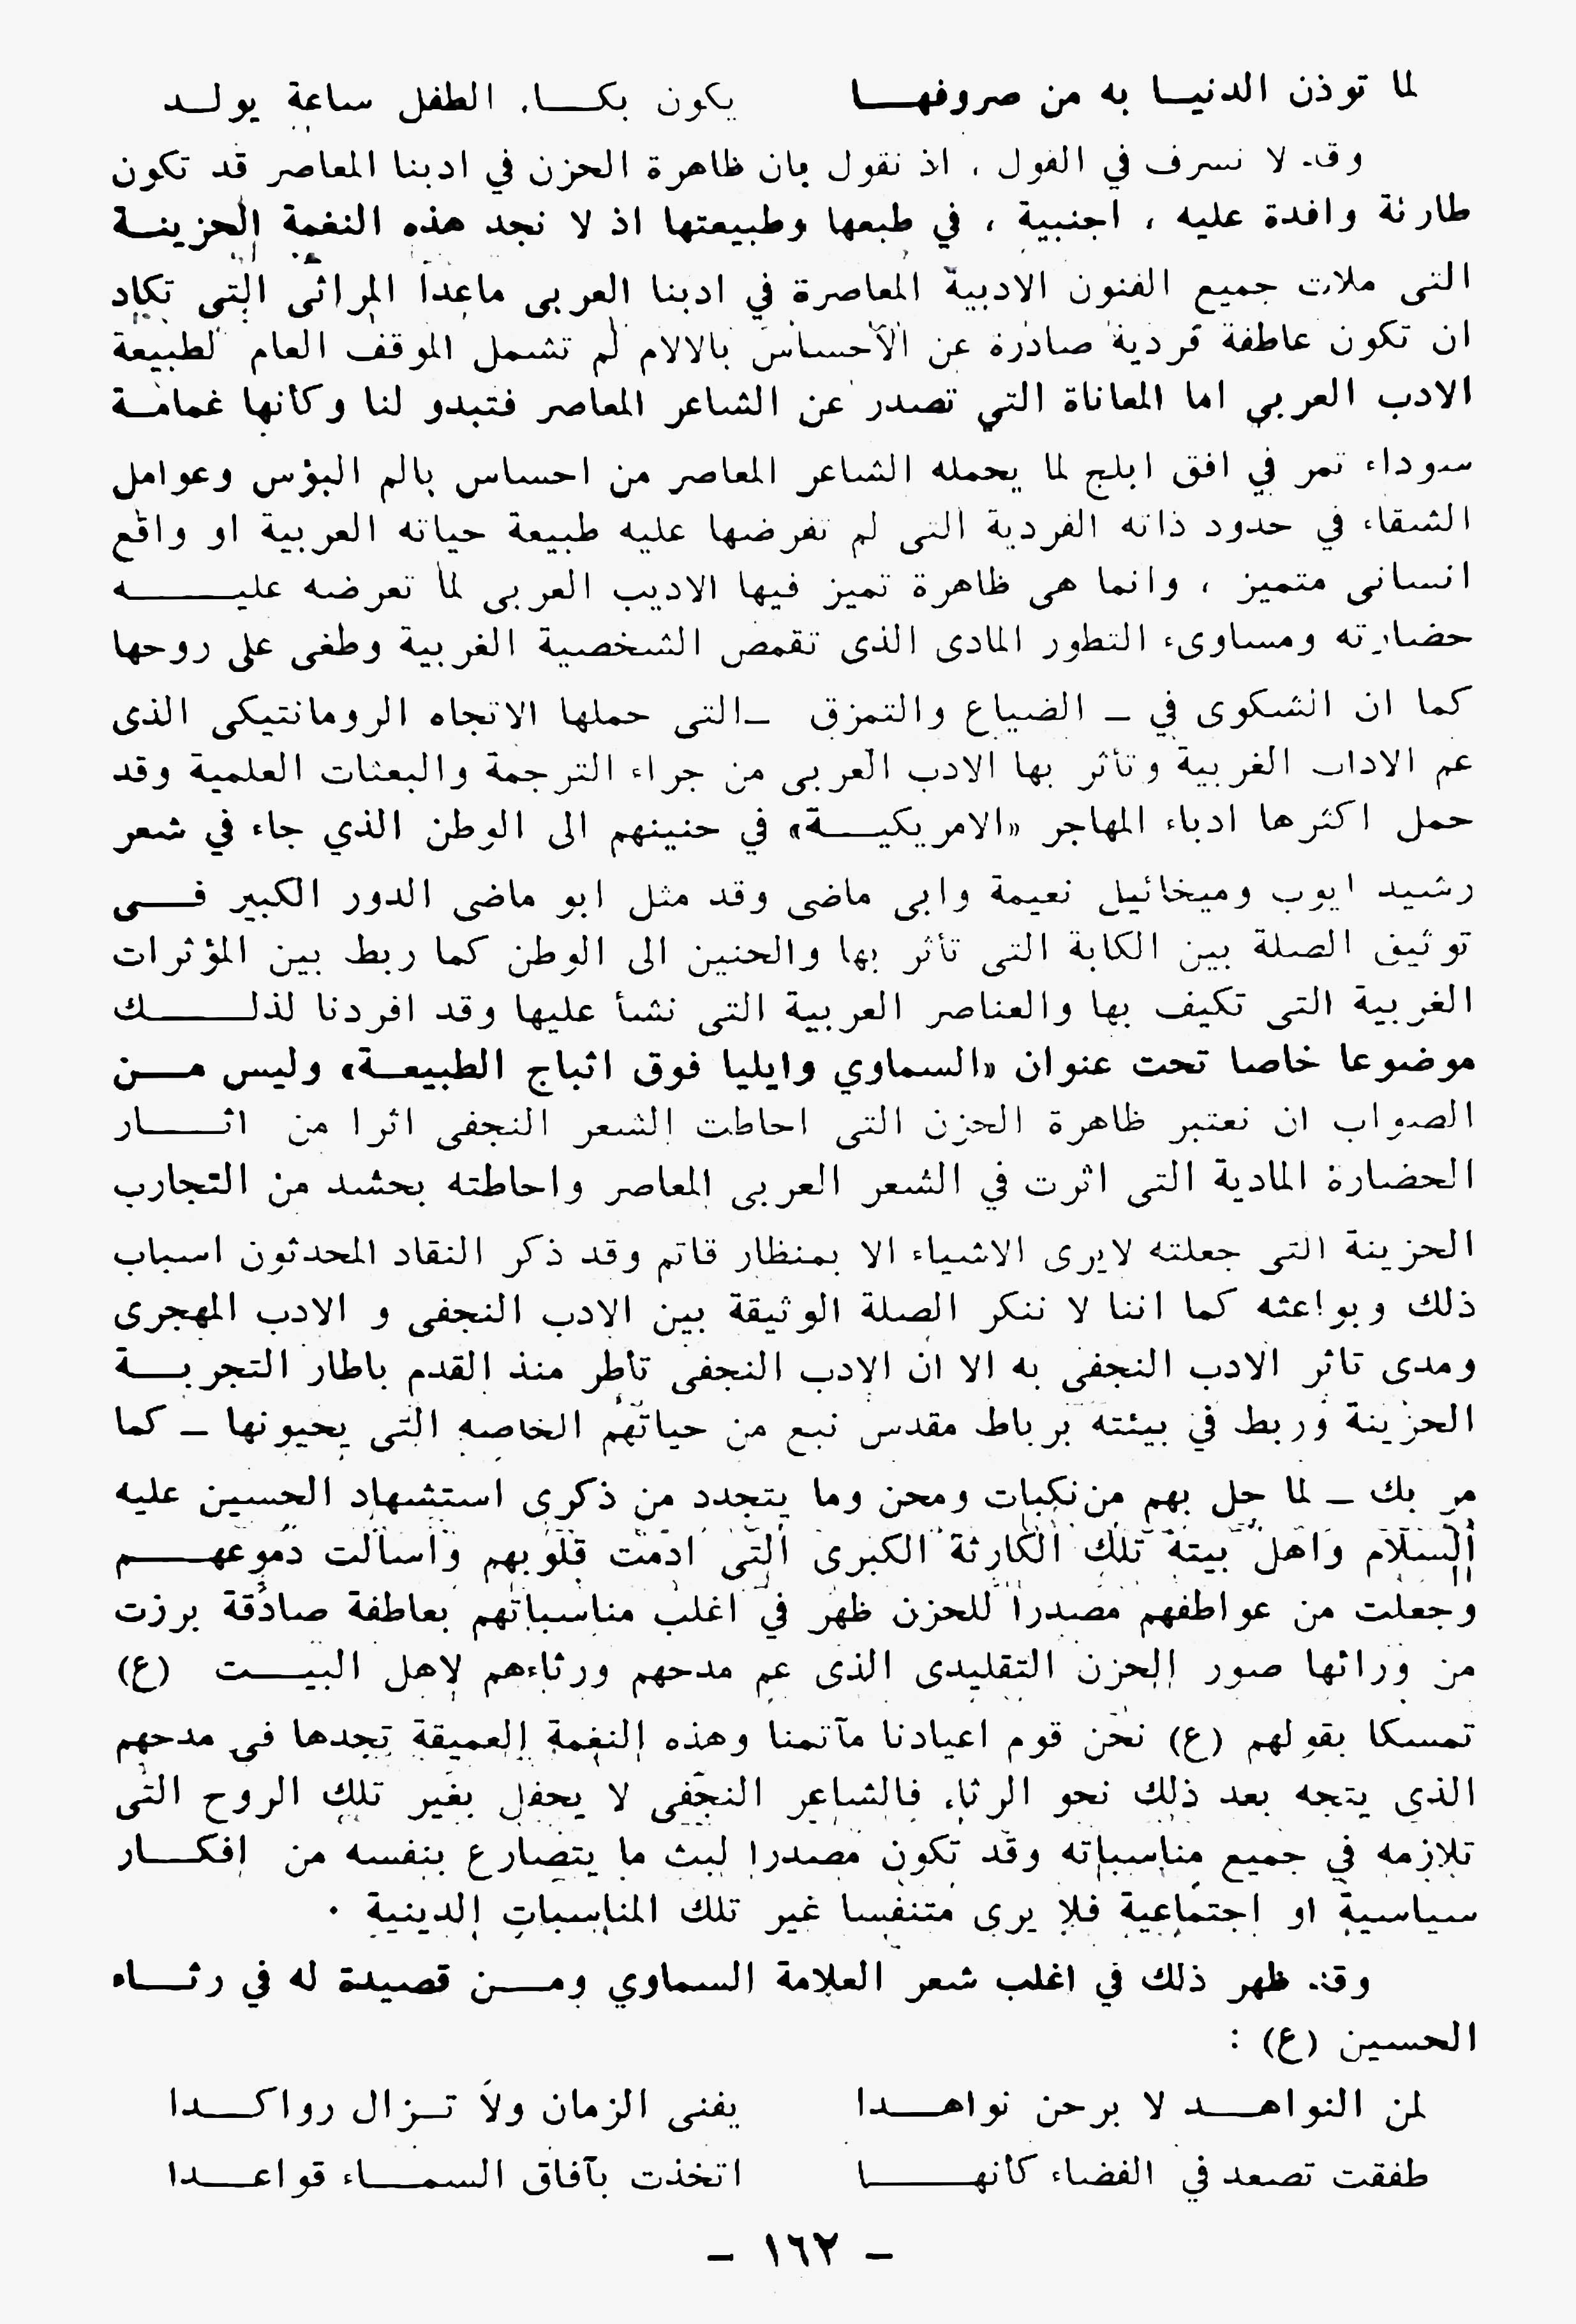 لما توذن الدنيا به من صروفها يكون بكاء الطفل ساعة يولد
وقد لا نسرف في القول ، اذ نقول بان ظاهرة الحزن في ادبنا المعاصر قد تكون
طارئة وافدة عليه ، اجنبية ، في طبعها وطبيعتها اذ لا نجد هذه النغمة الحزينة
التى ملات جميع الفنون الادبية المعاصرة في ادبنا العربى ماعدا المراثى التى تكاد
ان تكون عاطفة فردية صادرة عن الاحساس بالالام لم تشمل الموقف العام لطبيعة
الادب العربي اما المعاناة التي تصدر عن الشاعر المعاصر فتبدو لنا وكأنها غمامة
سوداء تمر في افق ابلج لما يحمله الشاعر المعاصر من احساس بالم البؤس وعوامل
الشقاء في حدود ذاته الفردية التى لم تفرضها عليه طبيعة حياته العربية او واقع
انسانى متميز ، وانما هى ظاهرة تميز فيها الاديب العربى لما تعرضه عليه
حضارته ومساوىء التطور المادى الذى تقمص الشخصية الغربية وطغى على روحها
كما ان الشكوى في ـ الضياع والتمزق ـ التى حملها الاتجاه الرومانتيكى الذى
عم الاداب الغربية وتأثر بها الادب العربى من جراء الترجمة والبعثات العلمية وقد
حمل اكثرها ادباء المهاجر «الامريكية» في حنينهم الى الوطن الذي جاء في شعر
رشيد ايوب وميخائيل نعيمة وابى ماضى وقد مثل ابو ماضى الدور الكبير فى
توثيق الصلة بين الكابة التى تأثر بها والحنين الى الوطن كما ربط بين المؤثرات
الغربية التى تكيف بها والعناصر العربية التى نشأ عليها وقد افردنا لذلك
موضوعا خاصا تحت عنوان «السماوي وايليا فوق اثباج الطبيعة» وليس من
الصواب ان نعتبر ظاهرة الحزن التى احاطت الشعر النجفى اثرا من اثار
الحضارة المادية التى اثرت في الشعر العربى المعاصر واحاطته بحشد من التجارب
الحزينة التى جعلته لايرى الاشياء الا بمنظار قاتم وقد ذكر النقاد المحدثون اسباب
ذلك وبواعثه كما اننا لا ننكر الصلة الوثيقة بين الادب النجفى و الادب المهجرى
ومدى تاثر الادب النجفى به الا ان الادب النجفى تأطر منذ القدم باطار التجربة
الحزينة وربط في بيئته برباط مقدس نبع من حياتهم الخاصه التى يحيونها ـ كما
مر بك ـ لما حل بهم من نكبات ومحن وما يتجدد من ذكرى استشهاد الحسين عليه
السلام واهل بيته تلك الكارثة الكبرى التى ادمت قلوبهم واسالت دموعهم
وجعلت من عواطفهم مصدرا للحزن ظهر في اغلب مناسباتهم بعاطفة صادقة برزت
من ورائها صور الحزن التقليدى الذى عم مدحهم ورثاءهم لاهل البيت (ع)
تمسكا بقولهم (ع) نحن قوم اعيادنا مآتمنا وهذه النغمة العميقة تجدها فى مدحهم
الذى يتجه بعد ذلك نحو الرثاء فالشاعر النجفى لا يحفل بغير تلك الروح التى
تلازمه في جميع مناسباته وقد تكون مصدرا لبث ما يتصارع بنفسه من افكار
سياسية او اجتماعية فلا يرى متنفسا غير تلك المناسبات الدينية .
وقد ظهر ذلك في اغلب شعر العلامة السماوي ومن قصيدة له في رثاء
الحسين (ع) :
لمن النواهد لا برحن نواهدا يفنى الزمان ولا تزال رواكدا
طفقت تصعد في الفضاء كأنها اتخذت بآفاق السماء قواعدا
ـ ١٦٢ ـ